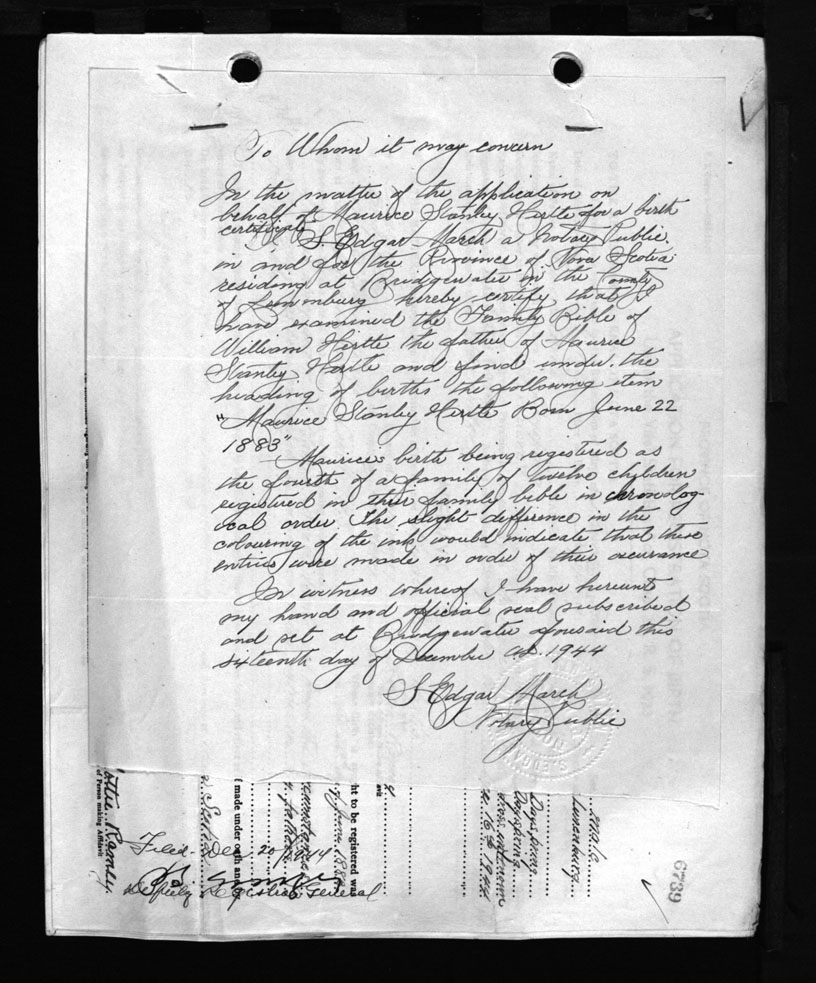 To Whom it may concern
In the matter of the application on
behalf of Maurice Stanley Hirtle for a birth
certificate I S. Edgar March a Notary Public
in and for the Province of Nova Scotia
residing at Bridgewater in the County
of Lunenburg hereby certify that I
have examined the Family Bible of
William Hirtle the father of Maurice
Stanley Hirtle and find under the
heading of births the following item
"Maurice Stanley Hirtle Born June 22
1883"
Maurice's birth being registered as
the fourth of a family of twelve children
registered in their family bible in chronolog-
ical order. The slight difference in the
colouring of the ink would indicate that these
entries were made in order of their occurance
In witness whereof I have hereunto
my hand and official seal subscribed
and set at Bridgewater aforesaid this
sixteenth day of December A.D. 1944
S Edgar March
Notary Public
Ramsey
of Person making Affidavit
Filed Dec 20 1944
Deputy Registrar General
t made under oath and
ht to be registered was
of June 1883
Lunenburg
Dayspring
Dec. 16th 1944
6739